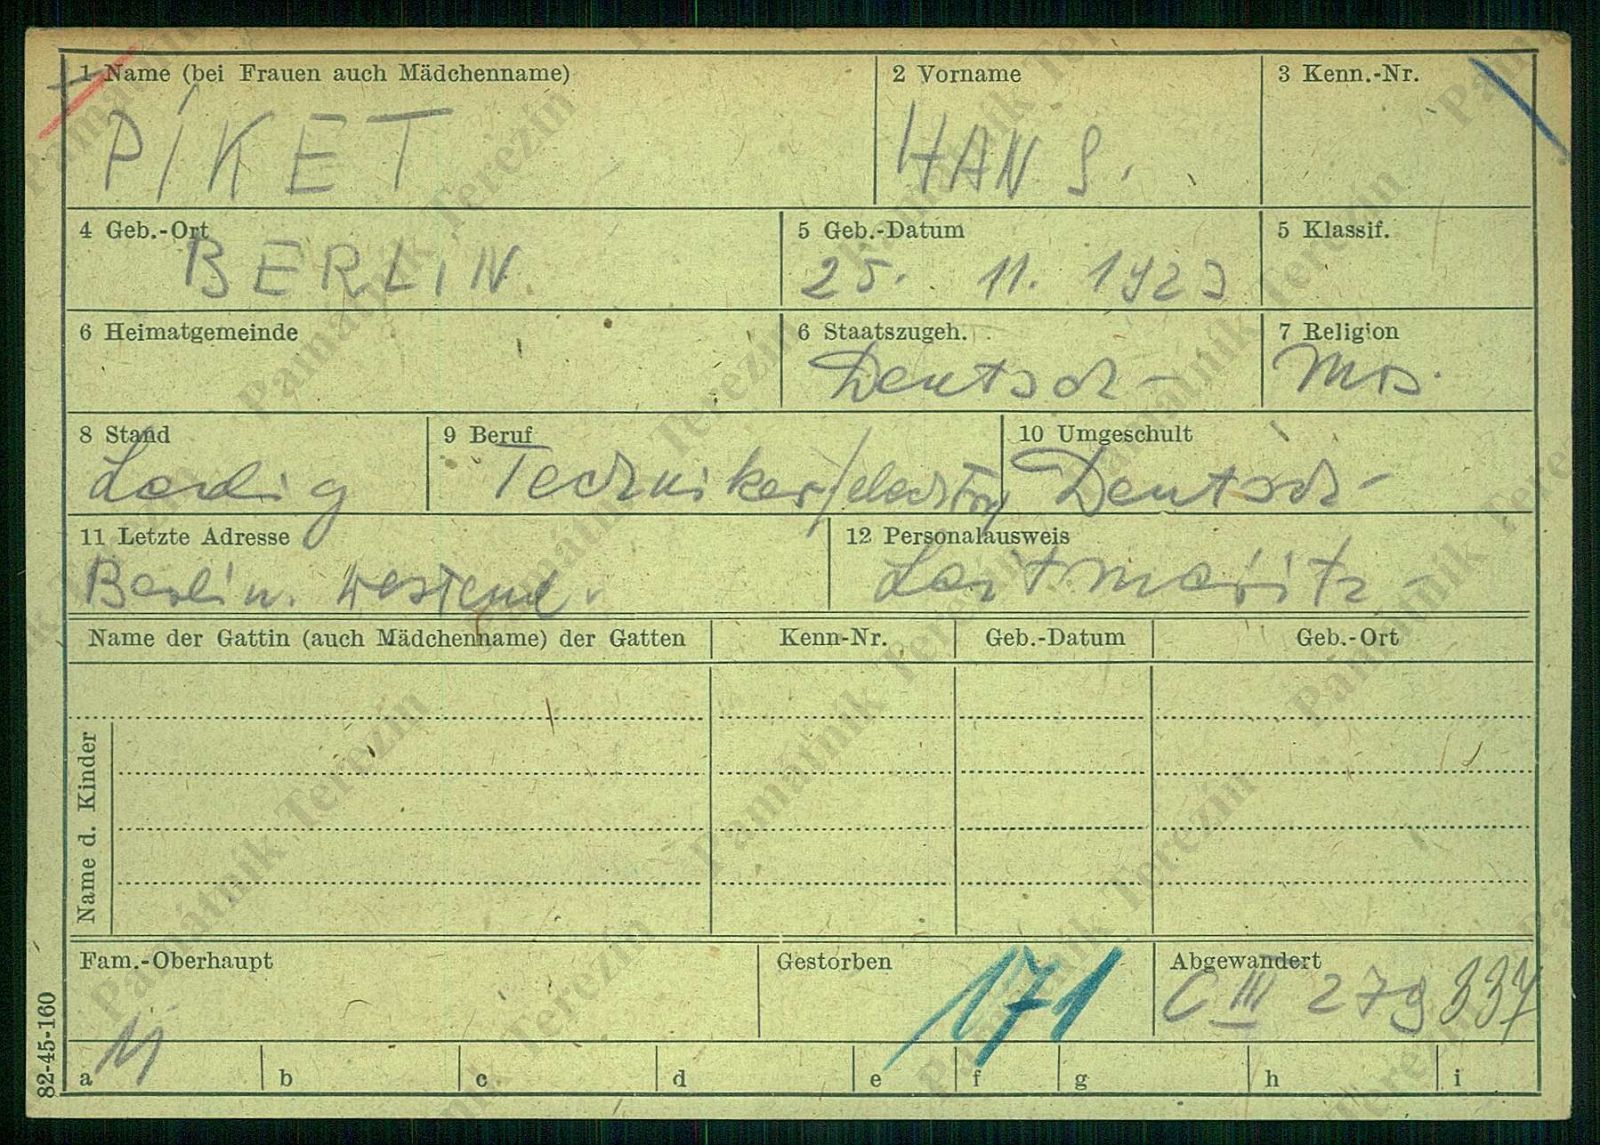 1 Name (bei Frauen auch Mädchenname) 2 Vorname 3 Kenn.-Nr.
PIKET HANS.
4 Geb.-Ort 5 Geb.-Datum 5 Klassif.
BERLIN 25. 11. 1923
6 Heimatgemeinde 6 Staatszugeh. 7 Religion
Deutsch - Mos.
8 Stand 9 Beruf 10 Umgeschult
Ledig Techniker/electro Deutsch -
11 Letzte Adresse 12 Personalausweis
Berlin. Westend. Leitmeritz -
Name der Gattin (auch Mädchenname) der Gatten Kenn-Nr. Geb.-Datum Geb.-Ort
Name d. Kinder
Fam.-Oberhaupt Gestorben 171 Abgewandert
C III 279 337
a b c d e f g h i
82-45-160
Památník Terezín